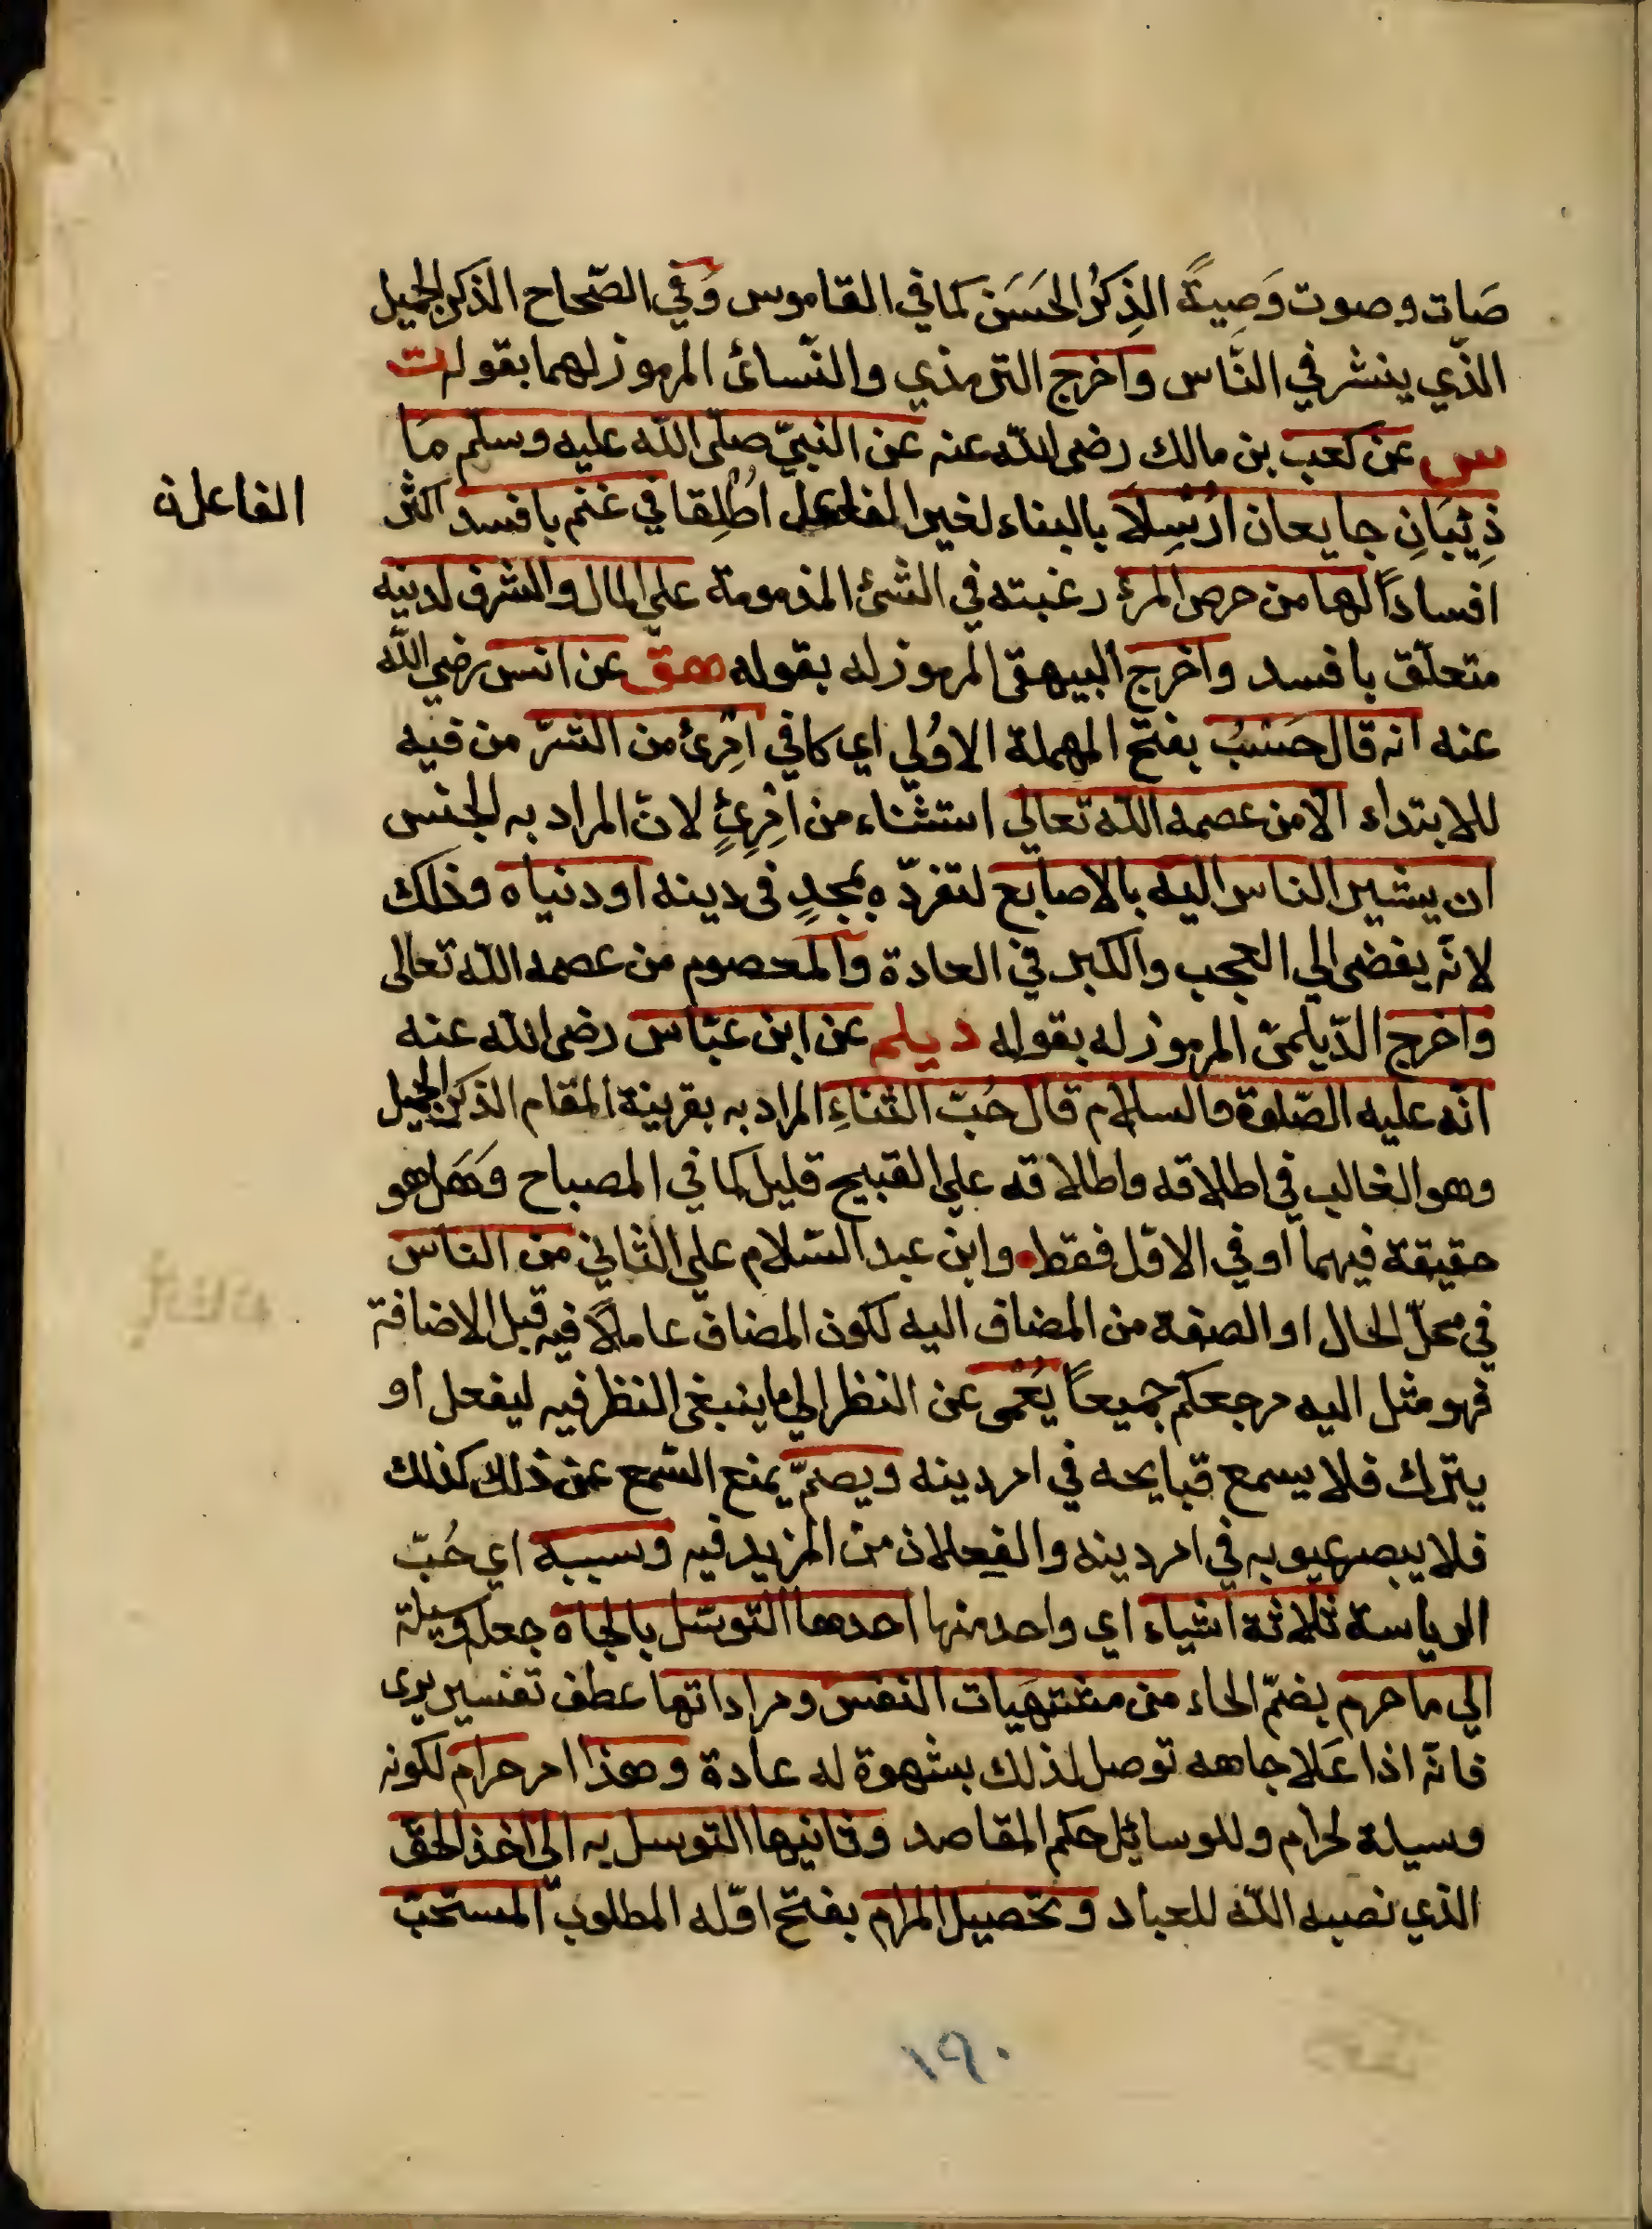 صَات وصوت وَصِيتٌ الذِكْرُ الحَسَن كما في القاموس وَفي الصّحاح الذكر الجميل
الذّي ينشر في النّاس واخرج الترمذي والنّسائ المرموز لهما بقوله ت
س عن كعب بن مالك رضى الله عنه عن النبيّ صلّى الله عليه وسلم مَا
ذِئبَانِ جايعان اُرْسِلاَ بالبناء لغير الفاعل اُطْلِقا في غنم بافسد اكثر
الفاعلة
افسادًا لها من حرص المرءِ رغبته في الشئ المذمومة على المال والشرف لدينه
متعلّق بافسد واخرج البيهقى المرموز له بقوله هقّ عن انس رضي الله
عنه انه قال حَسْبُ بفتح المهملة الاوُلي اي كافي امْرِئ من الشرّ من فيه
للابتداء الّا من عصمه الله تعالي استثناء من امْرِئٍ لانّ المراد به الجنس
ان يشير الناس اليه بالاصابع لتفرّده بمجدٍ في دينه او دنياه وذلك
لانّه يفضى الي العجب والكبر في العادة والمعصوم من عصمه الله تعالى
واخرج الدّيلمىّ المرموز له بقوله ديلم عن ابن عبّاس رضى الله عنه
انّه عليه الصّلوة والسلام قال حُبّ الثناءِ المراد به بقرينة المقام الذكر الجميل
وهو الغالب في اطلاقه واطلاقه على القبيح قليل كما في المصباح وَهَل هو
حقيقة فيهما او في الاوّل فقط وابن عبد السّلام على الثاني من الناس
في محلّ الحال او الصفة من المضاف اليه لكون المضاف عاملاً فيه قبل الاضافة
فهو مثل اليه مرجعكم جميعاً يُعْمى عن النظر الي ما ينبغى النظر فيه ليفعل او
يترك فلا يسمع قبايحه في امر دينه ويصمّ يمنع السّمع عن ذلك كذلك
فلا يبصر عيوبه في امر دينه والفعلان من المزيد فيه وسببه اي حُبّ
الرياسة ثلاثة اشياء اي واحد منها احدها التوسّل بالجاه جعله وسيلة
الي ما حرم بضمّ الحاء من مشتهَيات النفس ومراداتها عطف تفسيرىّ
فانّه اذا عَلا جاهه توصل لذلك بشهوة له عادة وهذا امر حرام لكونه
وسيلة لحرام وللوسائل حكم المقاصد وثانيها التوسل به الي اخذ الحقّ
الذي نصبه الله للعباد وتحصيل المرام بفتح اوّله المطلوب المستحبّ
١٩٠